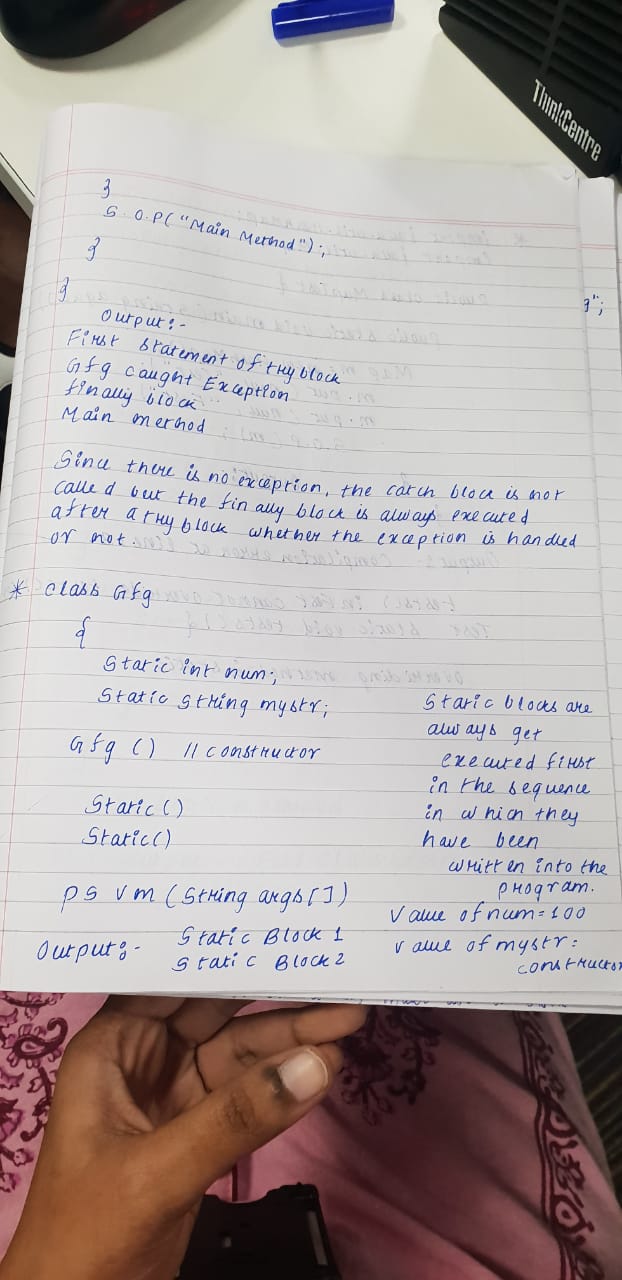 ThinkCentre
}
S.O.P("Main Method");
}
}
g";
Output:-
First Statement of try block
Gfg caught Exception
finally block
Main method
Since there is no exception, the catch block is not
called but the finally block is always executed
after a try block whether the exception is handled
or not.
* class Gfg
{
Static int num;
Static String mystr;
Gfg () // constructor
Static()
Static()
psvm (String args[])
Output:- Static Block 1
Static Block 2
Static blocks are
always get
executed first
in the sequence
in which they
have been
written into the
program.
Value of num=100
value of mystr:
constructor